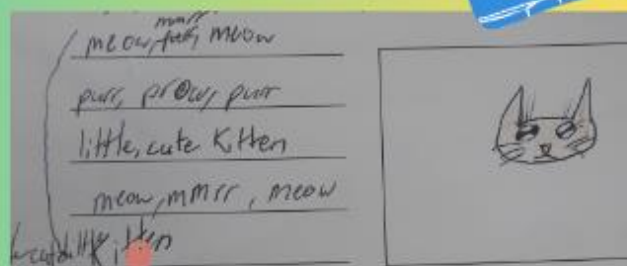 mmrr,
meow, meow
purr, prow, purr
little, cute Kitten
meow, mmrr, meow
Kitten